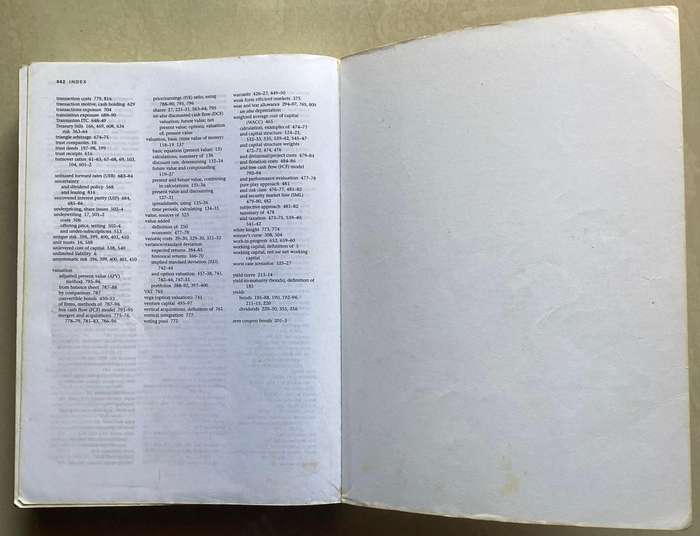 842 INDEX
transaction costs 779, 816
transaction motive, cash holding 629
transactions exposure 704
translation exposure 688-90
Treasury bills 166, 469, 608, 634
risk 363-64
triangle arbitrage 674-75
trust companies 16
trust deeds 197-98, 199
trust receipts 616
turnover ratios 61-63, 67-68, 69, 103,
unbiased forward rates (UFR) 683-84
uncertainty
and dividend policy 568
and leasing 816
uncovered interest parity (UIP) 684,
underpricing, share issues 502-4
underwriting 17, 501-2
costs 508
offering price, setting 502-4
and under-subscriptions 513
unique risk 398, 399, 400, 401, 410
unit trusts 16, 588
unlevered cost of capital 538, 540
unlimited liability 6
unsystematic risk 398, 399, 400, 401, 410
valuation
adjusted present value (APV)
method 795-96
from balance sheet 787-88
by comparison 787
convertible bonds
of firms, methods of 787-96
free cash flow (FCF) model 791-95
mergers and acquisitions 775-76,
778-79, 781-83, 786-96
price/earnings (P/E) ratio, using
788-90, 791, 796
shares 27, 221-31, 563-64, 795
see also discounted cash flow (DCF)
valuation; future value; net
present value; options; valuation
of; present value
valuation, basic (time value of money)
118-19, 137
basic equation (present value) 131
calculations, summary of 136
discount rate, determining 132-34
future value and compounding
119-27
present and future value, combining
in calculations 135-36
present value and discounting
127-31
spreadsheets, using 135-36
time periods, calculating 134-35
value, sources of 323
value added
definition of 250
economic 477-79
variable costs 29-30, 329-30, 331-33
variance/standard deviation
expected returns 384-85
historical returns 366-70
implied standard deviation (ISD)
742-44
and option valuation 737-38, 741,
742-44, 747-51
portfolios 388-92, 397-400
VAT 795
vega (option valuation) 741
venture capital 495-97
vertical acquisitions, definition of 761
vertical integration 777
voting pool 772
warrants 426-27, 449-50
weak form efficient markets 375
wear and tear allowance 294-97, 765, 805
see also depreciation
weighted average cost of capital
(WACC) 465
calculation, examples of 474-77
and capital structure 524-25,
532-33, 535, 539-42, 545-47
and capital structure weights
472-73, 474, 476
and divisional/project costs 479-84
and flotation costs 484-86
and free cash flow (FCF) model
792-94
and performance evaluation 477-78
pure play approach 481
and risk class 476-77, 481-82
and security market line (SML)
479-80, 482
subjective approach 481-82
summary of 478
and taxation 473-75, 539-40,
541-42
white knight 773, 774
winner's curse 508, 504
work-in-progress 652, 659-60
working capital, definition of 5
working capital, net see net working
capital
worst case scenarios 325-27
yield curve 213-14
yield-to-maturity (bonds), definition of
185
yields
bonds 185-88, 191, 192-94,
211-15, 220
dividends 229-30, 355, 356
zero coupon bonds 201-3